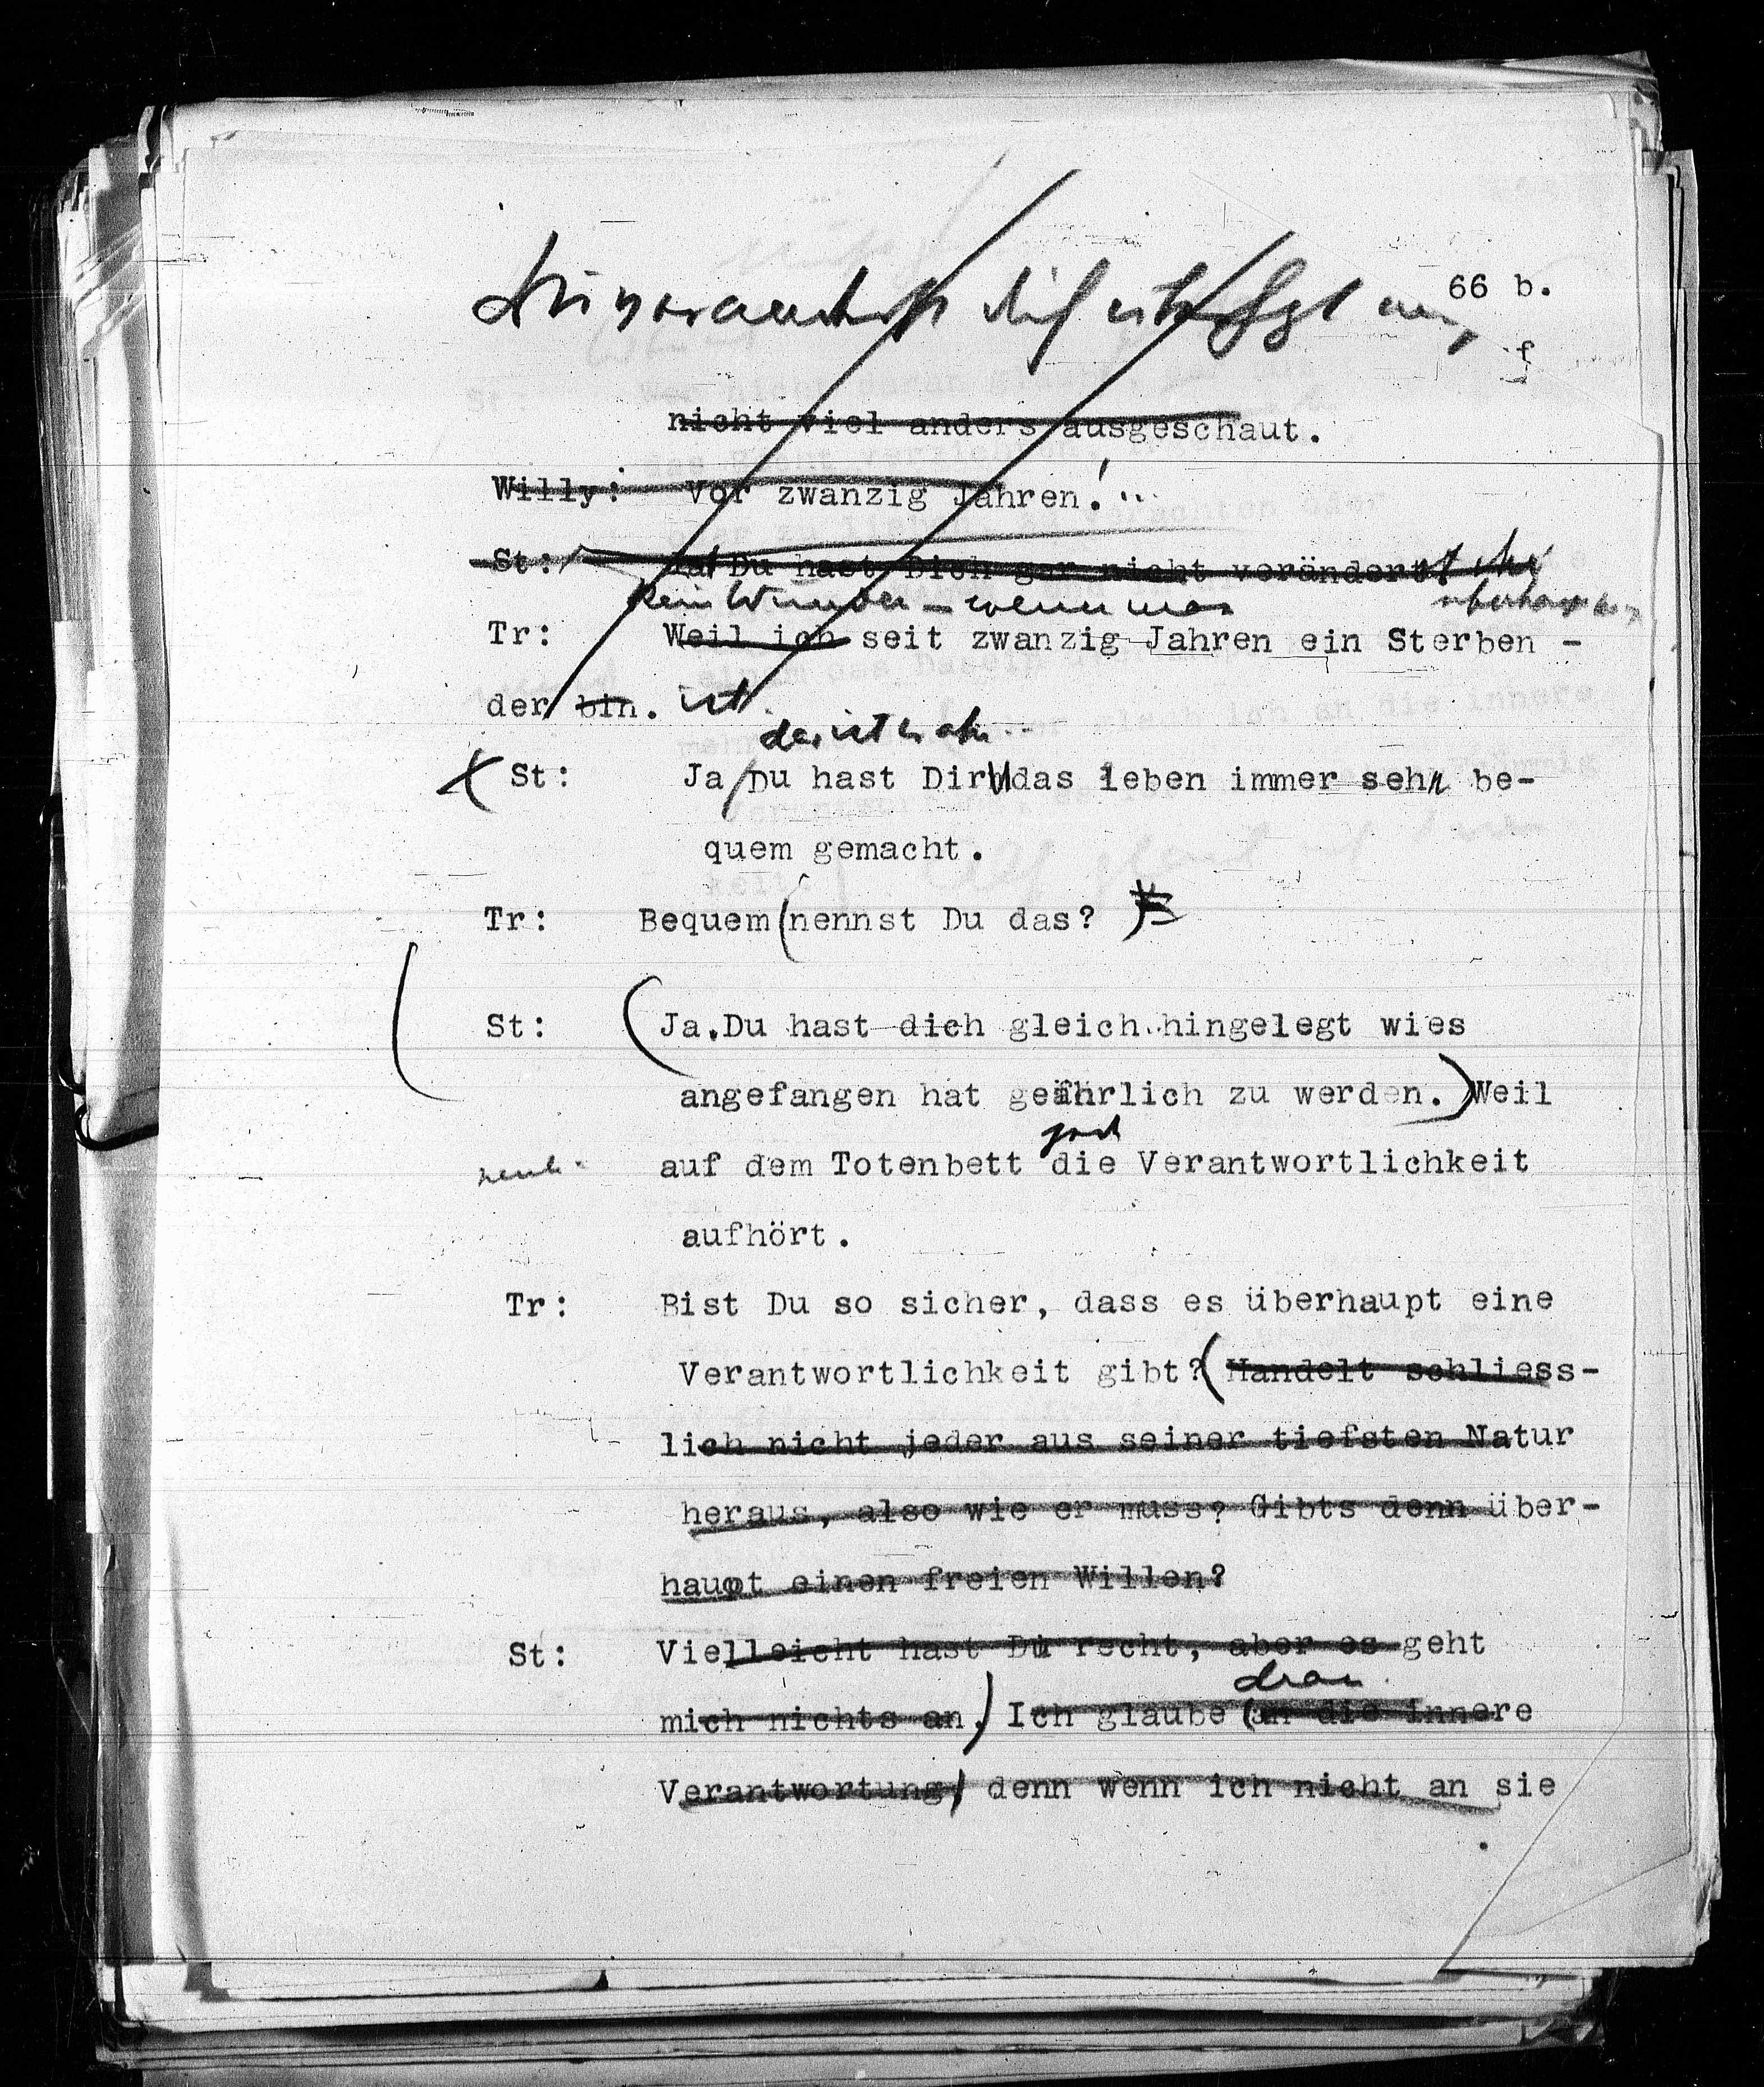 66 b.
f
nicht viel anders ausgeschaut.
Willy: Vor zwanzig Jahren!..
St: Ja! Du hast Dich gar nicht verändert
kein Wunder – wenn man
Tr: Weil ich seit zwanzig Jahren ein Sterben -
der bin. ist.
das ist wahr...
St: Ja Du hast Dir das leben immer sehr be-
quem gemacht.
Tr: Bequem (nennst Du das?)
St: (Ja.Du hast dich gleich hingelegt wies
angefangen hat gefährlich zu werden.) Weil
auf dem Totenbett die Verantwortlichkeit
aufhört.
Tr: Bist Du so sicher, dass es überhaupt eine
Verantwortlichkeit gibt? (Handelt schliess-
lich nicht jeder aus seiner tiefsten Natur
heraus, also wie er muss? Gibts denn über-
haupt einen freien Willen?
St: Vielleicht hast Du recht, aber es geht
dran
mich nichts an.) Ich glaube (an die innere
Verantwortung) denn wenn ich nicht an sie